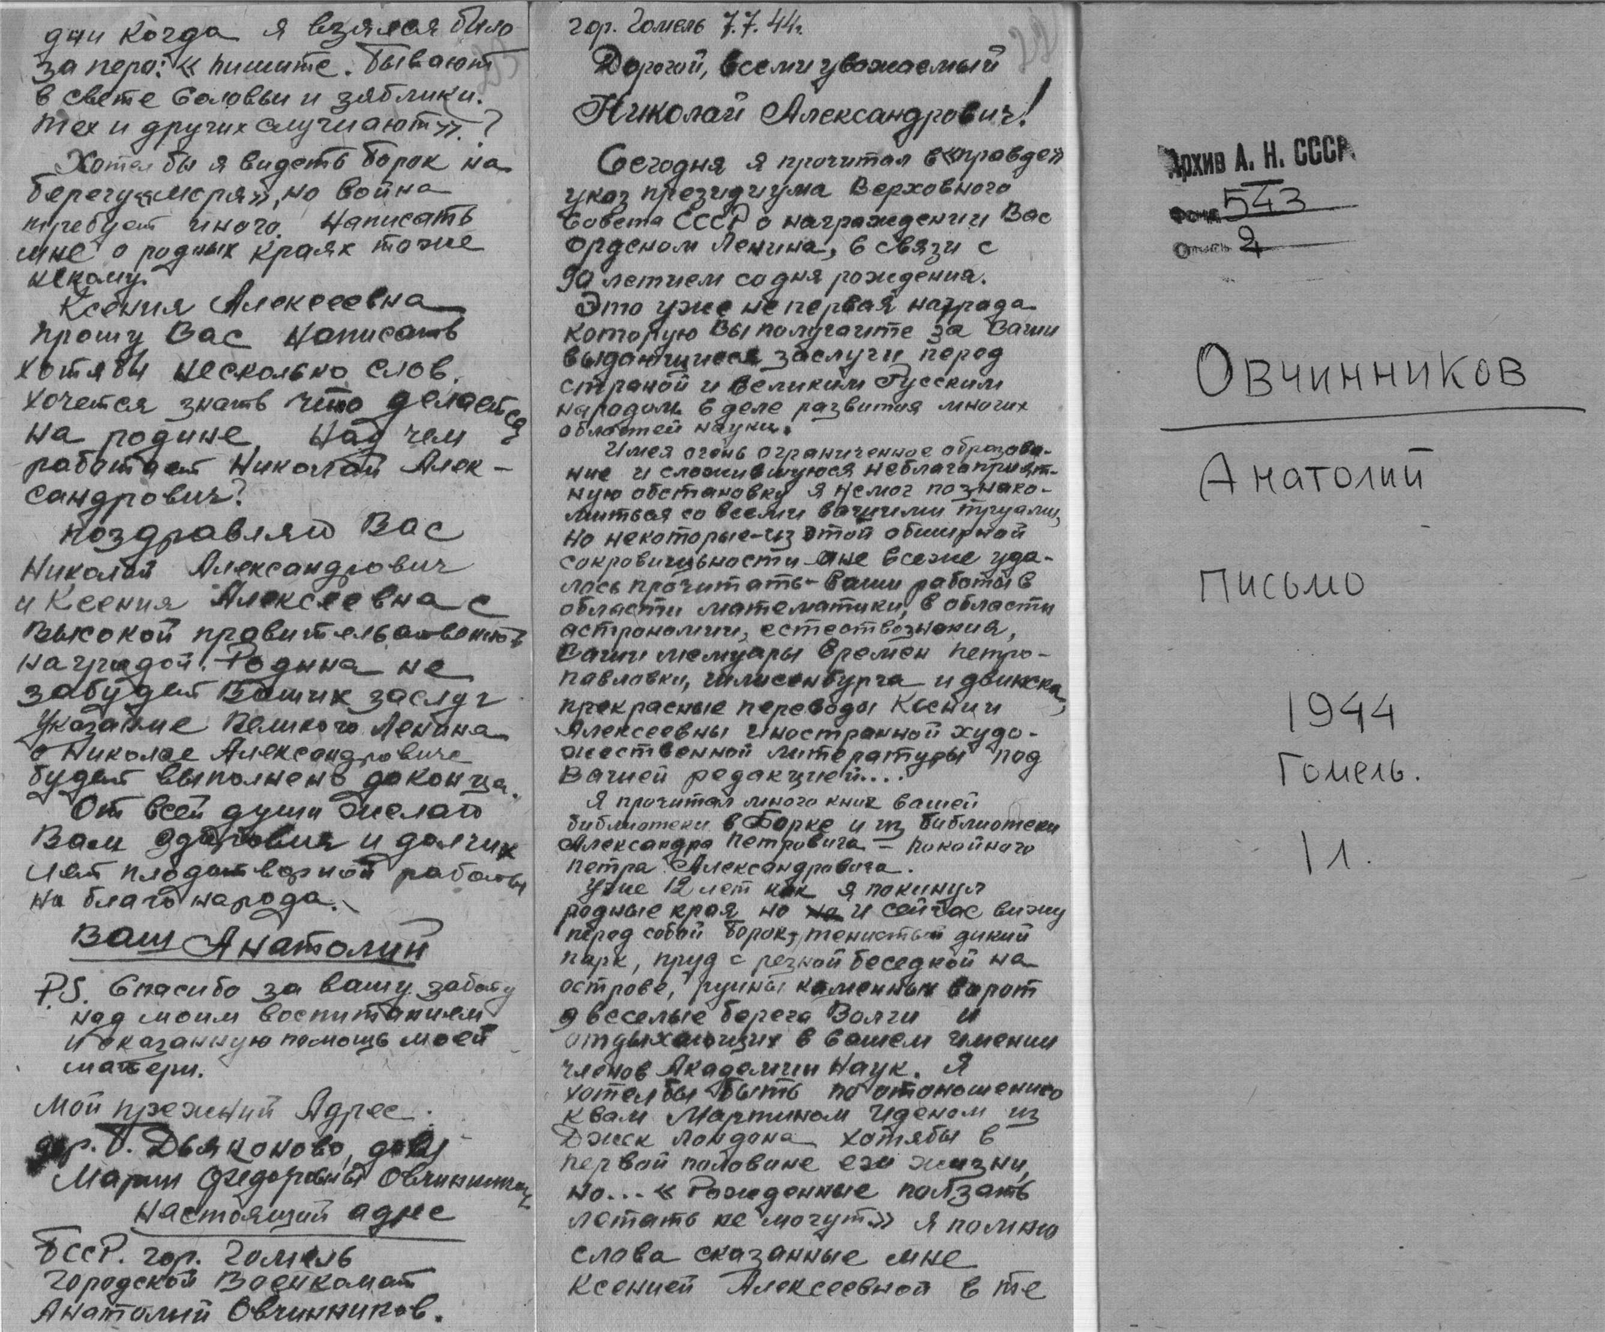 гор. Гомель 7.7.44г.
22
Дорогой, всеми уважаемый
Николай Александрович!
Сегодня я прочитал в «правде»
указ президиума Верховного
Совета СССР о награждении Вас
Орденом Ленина, в связи с
90 летием со дня рождения.
Это уже не первая награда
которую Вы получаите за Ваши
выдающиеся заслуги перед
страной и великим Русским
народом в деле развития многих
областей науки.
Имея очень ограниченное образова-
ние и сложившуюся неблагоприят-
ную обстановку я немог познако-
миться со всеми вашими трудами,
но некоторые-из этой обширной
сокровищьности мне всеже уда-
лось прочитать- Ваши работы в
области математики, в области
астрономии, естествознания,
Ваши мемуары времен петро-
павловки, шлисенбурга и двинска,
прекрасные переводы Ксении
Алексеевны иностранной худо-
жественной литературы под
Вашей редакцией....
Я прочитал много книг вашей
библиотеки в Борке и из библиотеки
Александра Петровича - покойного
петра Александровича.
Уже 12 лет как я покинул
родные края но и сейчас вижу
перед собой борок, тенистый дикий
парк, пруд с резной беседкой на
острове, руины каменных ворот
э веселые берега Волги и
отдыхающих в вашем имении
членов Академии Наук. Я
хотелбы быть по отоношению
к вам Мартином Иденом из
Джек Лондона хотябы в
первой половине его жизни,
но... « Рожденные ползать
летать не могут» я помню
слова сказанные мне
Ксенией Алексеевной в те
дни когда я взялся было
за перо: « пишите. бывают
в свете соловьи и зяблики.
тех и других слушают».?
Хотел бы я видеть борок на
берегу «моря», но война
требует иного. Написать
мне о родных краях тоже
некому.
Ксения Алексеевна
прошу Вас написать
хотябы несколько слов.
Хочется знать что делается
на родине, Над чем
работает Николай Алек-
сандрович?
поздравляю Вас
Николай Александрович
и Ксения Алексеевна с
высокой правительственной
наградой. Родина не
забудет Ваших заслуг
Указание Великого Ленина
о Николае Александровиче
будет выполнено до конца.
От всей души желаю
Вам здоровия и долгих
лет плодотворной работы
на благо народа.
Ваш Анатолий
P.S. Спасибо за вашу заботу
над моим воспитанием
и оказанную помощь моей
матери.
Мой прежний Адрес
дер. Б. Дьяконово, дом
Марии Федоровны Овчинниковой
Настоящий адрес
БССР. гор. Гомель
Городской Военкомат
Анатолий Овчинников.
Архив А. Н. СССР
Фонд 543
Опись 4
Овчинников
Анатолий
Письмо
1944
Гомель.
1 л.